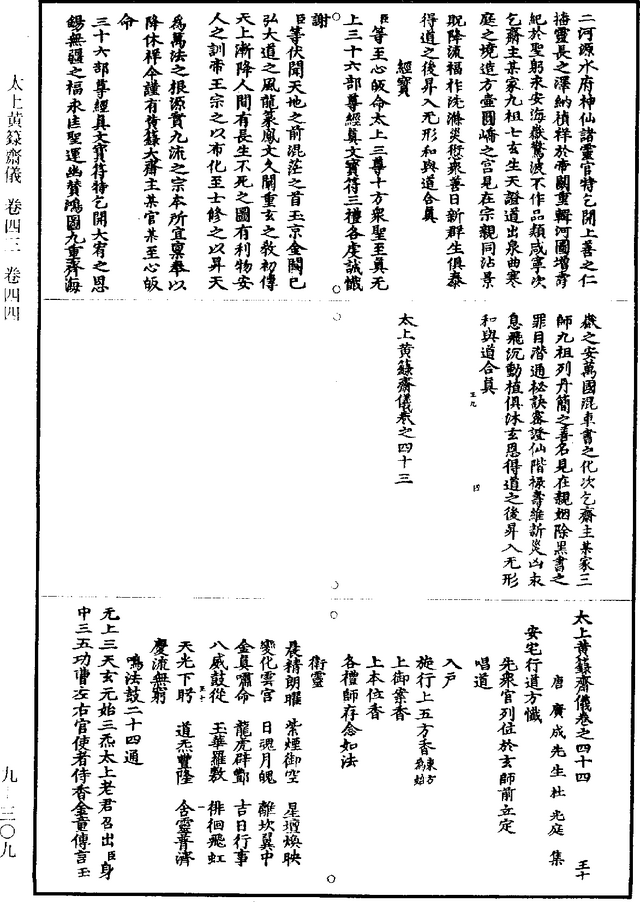 二河源水府神仙諸靈官特乞開上善之仁
播靈長之澤納禎祥於帝闕重輯河圖增壽
紀於聖躬永安海嶽驚波不作品類咸寧次
乞齋主某家九祖七玄生天證道出泉曲寒
庭之境造方壺圓嶠之宮見在宗親同沾景
貺降流福祚洗滌災愆衆善日新群生俱泰
得道之後昇入无形和與道合真
經寶
臣等至心皈命太上三尊十方衆聖至真无
上三十六部尊經真文寶符三禮各虔誠懺
謝
臣等伏聞天地之前混茫之首玉京金闕已
弘大道之風龍篆鳳文久闡重玄之教初傳
天上漸降人間有長生不死之圖有利物安
人之訓帝王宗之以布化至士修之以昇天
為萬法之根源實九流之宗本所宜稟奉以
降休祥今謹有黃籙大齋主某官某至心皈
命
三十六部尊經真文寶符特乞開大宥之恩
錫無疆之福永匡聖運幽贊鴻圖九重齊海
嶽之安萬國混車書之化次乞齋主某家三
師九祖列丹簡之善名見在親姻除黑書之
罪目潛通秘訣密證仙階祿壽維新災凶永
息飛沉動植俱沐玄恩得道之後昇入无形
和與道合真
太上黃籙齋儀卷之四十三
太上黃籙齋儀卷之四十四
唐廣成先生杜光庭集
安宅行道方懺
先衆官列位於玄師前立定
唱道
入戶
施行上五方香東方為始
上御案香
上本位香
各禮師存念如法
衛靈
晨精朗曜 紫煙御空 星壇煥映
變化雲宮 日魂月魄 離坎翼中
金真嘯命 龍虎辟酆 吉日行事
八威鼓從 玉華羅敷 徘徊飛虹
天光下眄 道炁豐隆 含靈普濟
慶流無窮
鳴法鼓二十四通
无上三天玄元始三炁太上老君召出臣身
中三五功曹左右官使者侍香金童傳言玉
太上黃籙齋儀 卷四三 卷四四
九—三〇九